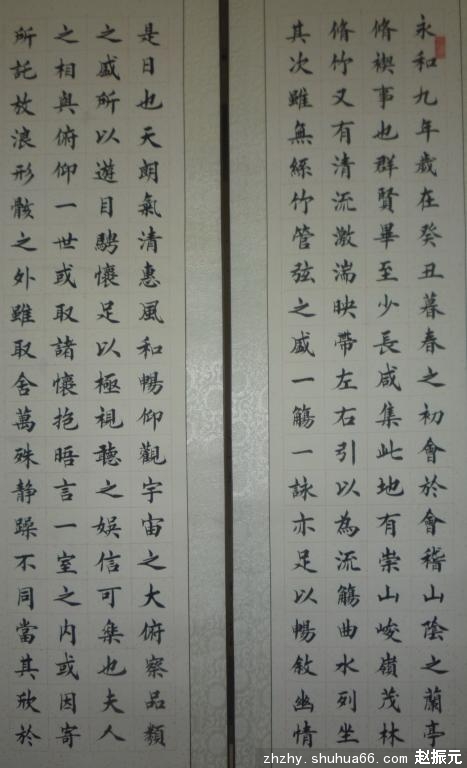 永和九年歲在癸丑暮春之初會於會稽山陰之蘭亭
脩禊事也群賢畢至少長咸集此地有崇山峻嶺茂林
脩竹又有清流激湍映帶左右引以為流觴曲水列坐
其次雖無絲竹管弦之盛一觴一詠亦足以暢敘幽情
是日也天朗氣清惠風和暢仰觀宇宙之大俯察品類
之盛所以遊目騁懷足以極視聽之娛信可樂也夫人
之相與俯仰一世或取諸懷抱晤言一室之內或因寄
所託放浪形骸之外雖取舍萬殊静躁不同當其欣於
zhzhy.shuhua66.com 赵振元